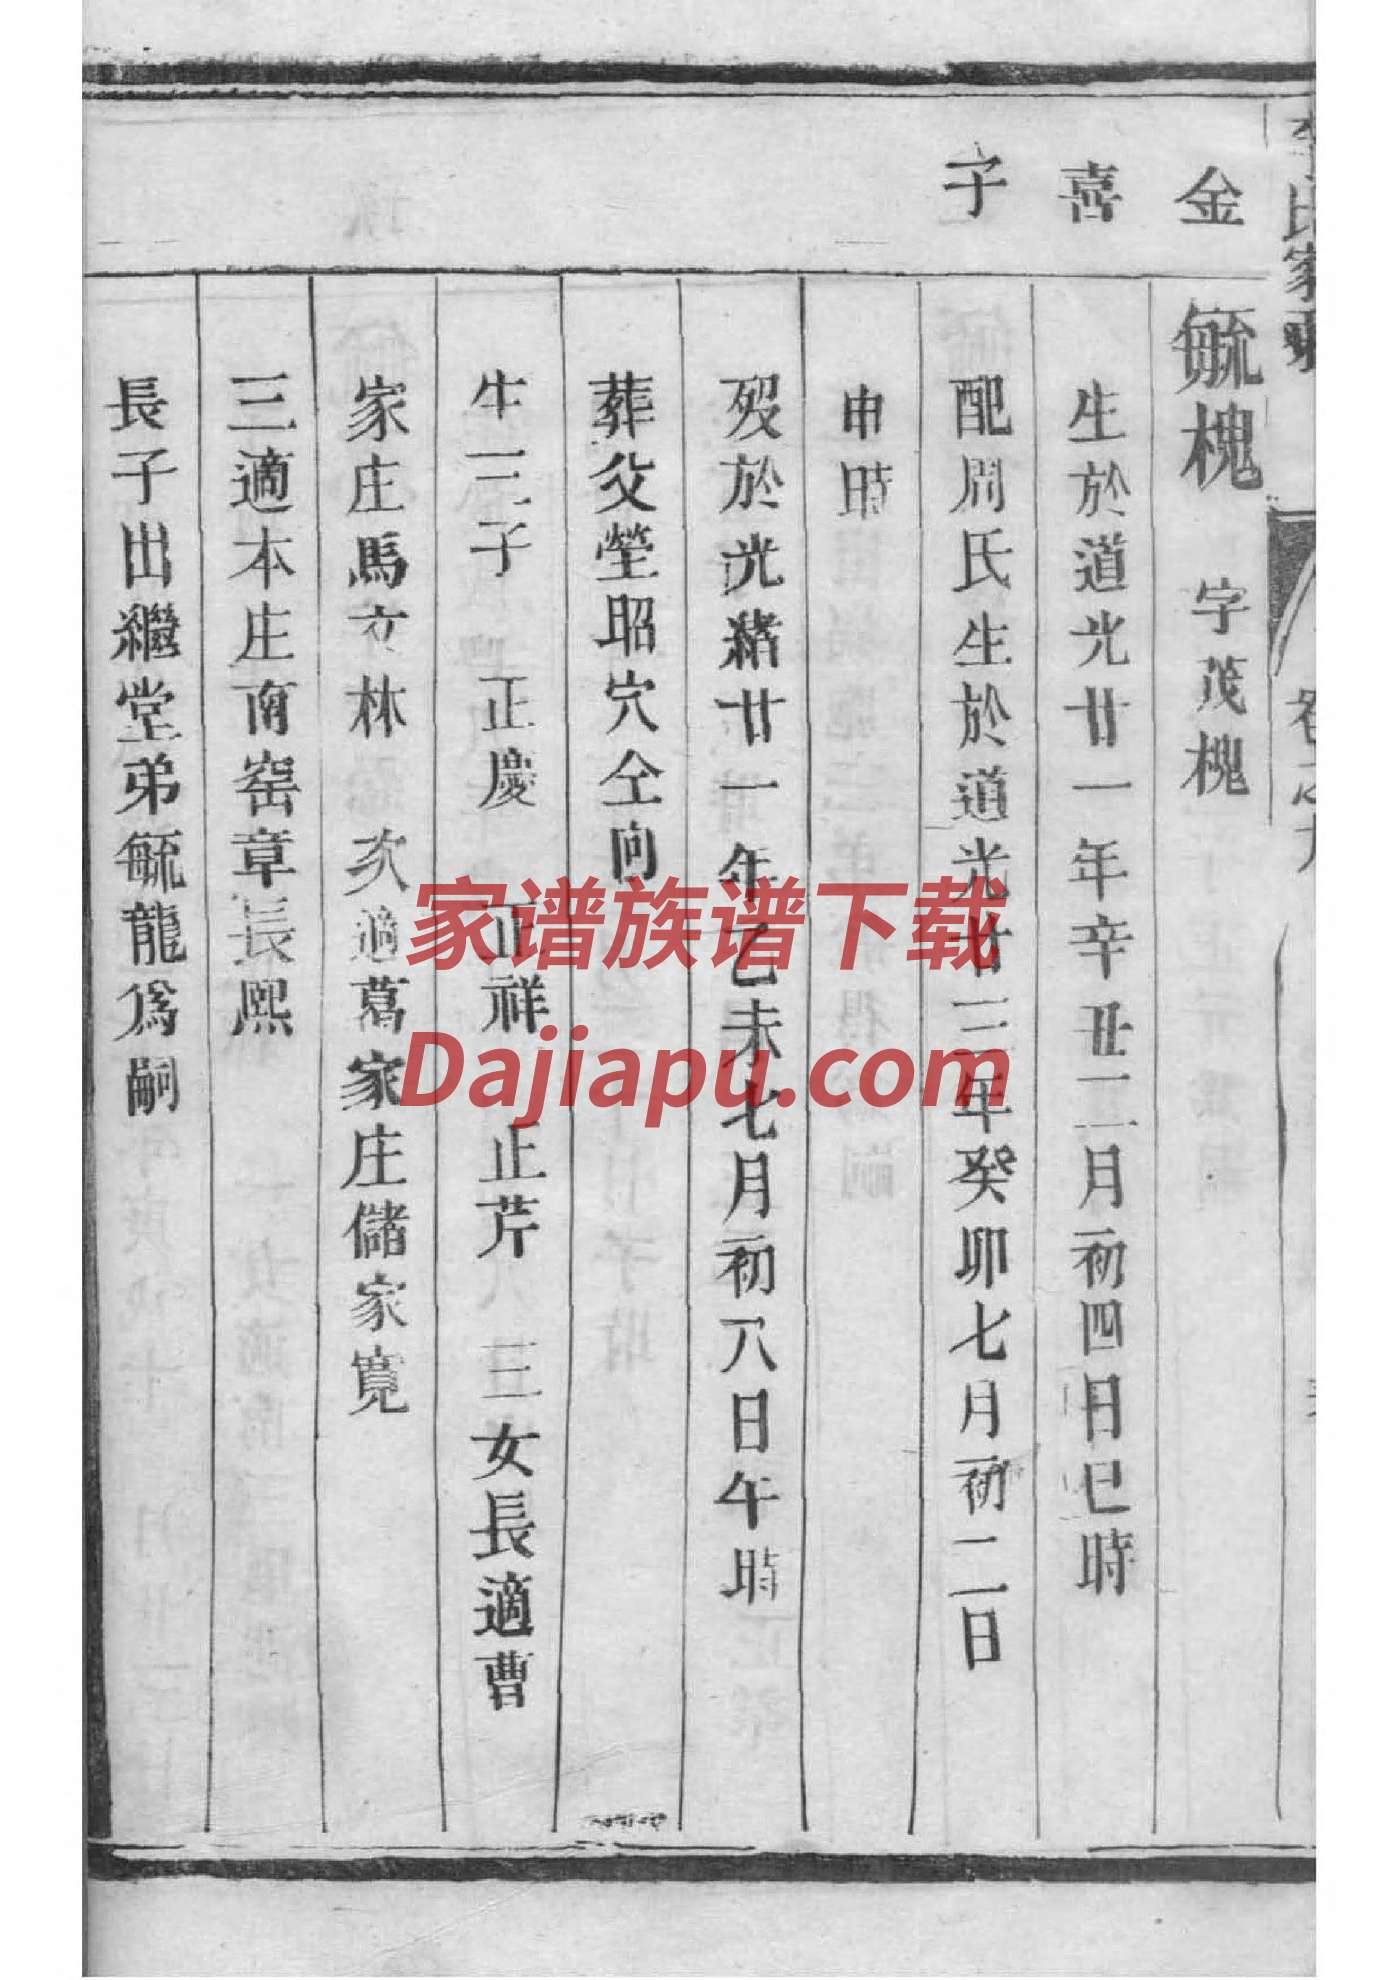 金喜子
毓槐 字茂槐
生於道光廿一年辛丑二月初四日巳時
配周氏生於道光廿三年癸卯七月初二日
申時
歿於光緒廿一年乙未七月初八日午時
葬父塋昭穴仝向
生三子 正慶 正祥 正芹 三女長適曹
家庄馬文林 次適葛家庄儲家寬
三適本庄南窑章長熙
長子出繼堂弟毓龍為嗣
家谱族谱下载
Dajiapu.com